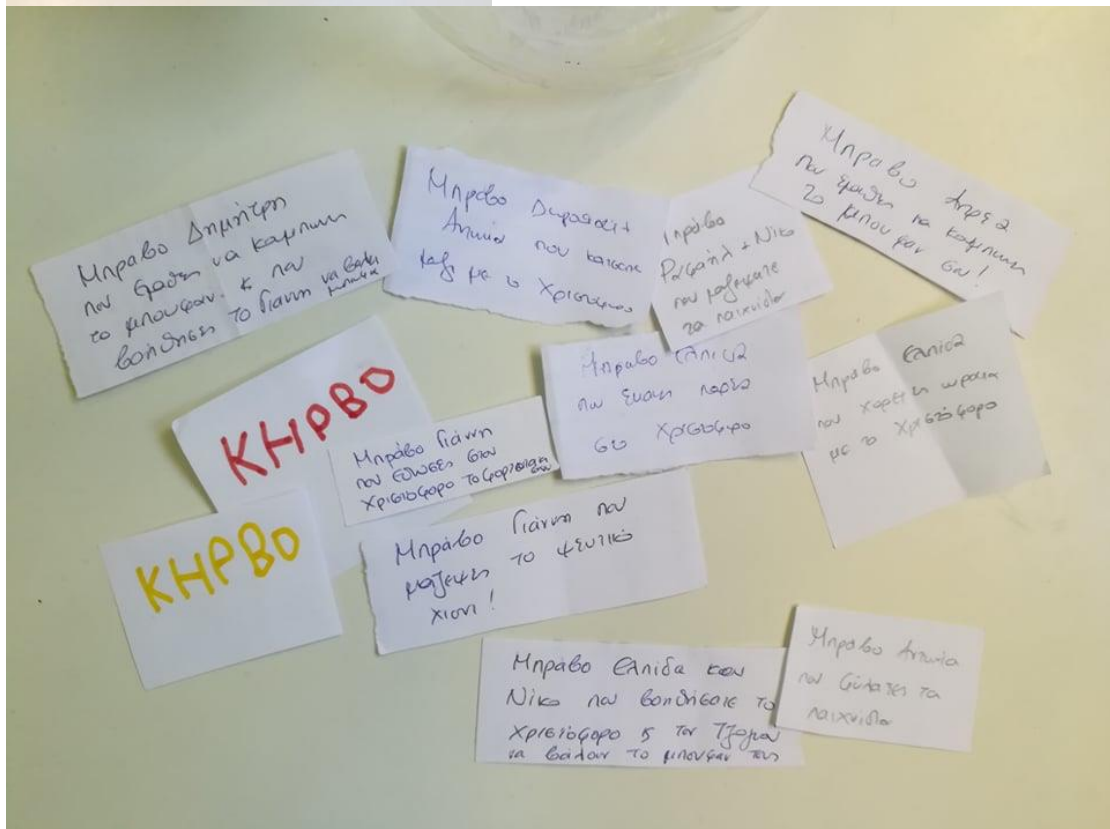 Μπράβο Δημήτρη
που έμαθες να κουμπώνεις
το μπουφάν κ που
βοήθησες το Γιάννη να βάλει
μπουφάν
Μπράβο
Αντωνία που κάτσατε
μαζί με το Χριστόφορο
Μπράβο
Ραφαήλ + Νίκο
που μαζέψατε
τα παιχνίδια
Μπράβο Ανδρέα
που έμαθες να κουμπώνεις
το μπουφάν σου!
ΚΗΡΒΟ
Μπράβο Γιάννη
που έδωσες στον
Χριστόφορο το φορτηγάκι
σου
Μπράβο Ελπίδα
που έκανες παρέα
στο Χριστόφορο
Μπράβο Ελπίδα
που χορεύεις ωραία
με το Χριστόφορο
ΚΗΡΒΟ
Μπράβο Γιάννη που
μάζεψες το ψεύτικο
χιόνι!
Μπράβο Ελπίδα και
Νίκο που βοηθήσατε το
Χριστόφορο κ τον
να βάλουν το μπουφάν τους
Μπράβο Αντωνία
που φύλαξες τα
παιχνίδια